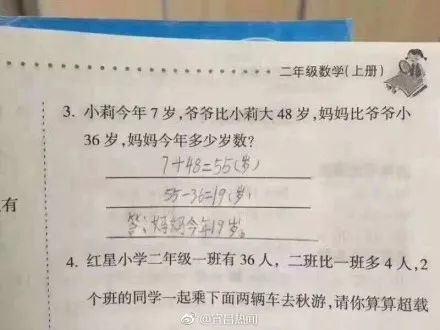 二年级数学(上册)
3. 小莉今年7岁,爷爷比小莉大48岁,妈妈比爷爷小
36岁,妈妈今年多少岁数?
7+48=55(岁)
55-36=19(岁)
答:妈妈今年19岁。
有
4. 红星小学二年级一班有36人,二班比一班多4人,2
个班的同学一起乘下面两辆车去秋游,请你算算超载
@宵目热闻